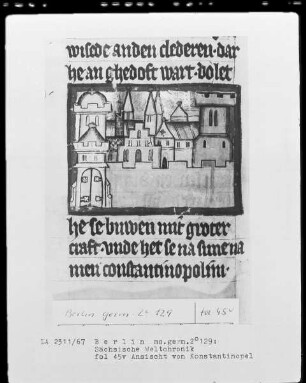 wisede an den clederen· dar
he an ghedoft wart· do let
he se buwen mit groter
craft· unde het se na sime na
men constantinopolim·
Berlin germ. 2° 129
fol 45v
LA 2511/67 Berlin ms.germ.2°129:
Sächsische Weltchronik
fol 45v Ansicht von Konstantinopel